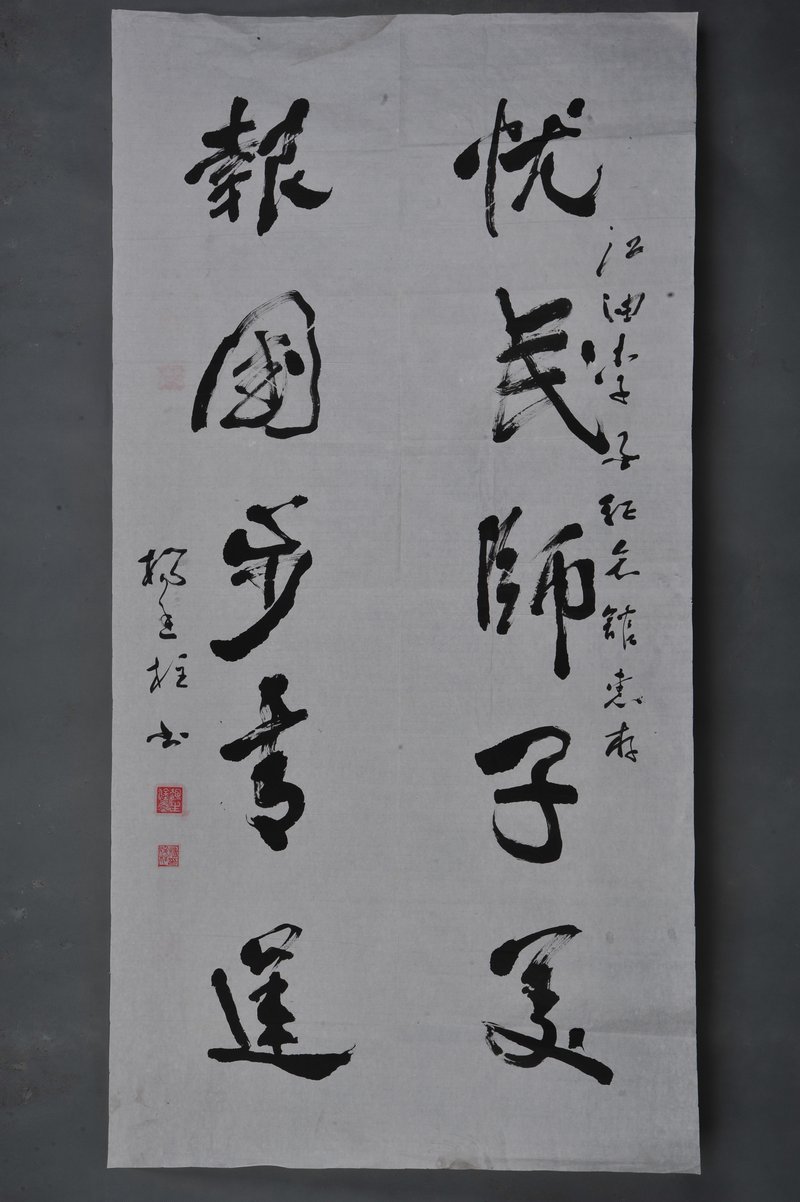 江油李白紀念館惠存
忧民師子美
報國步青蓮
楊柱书